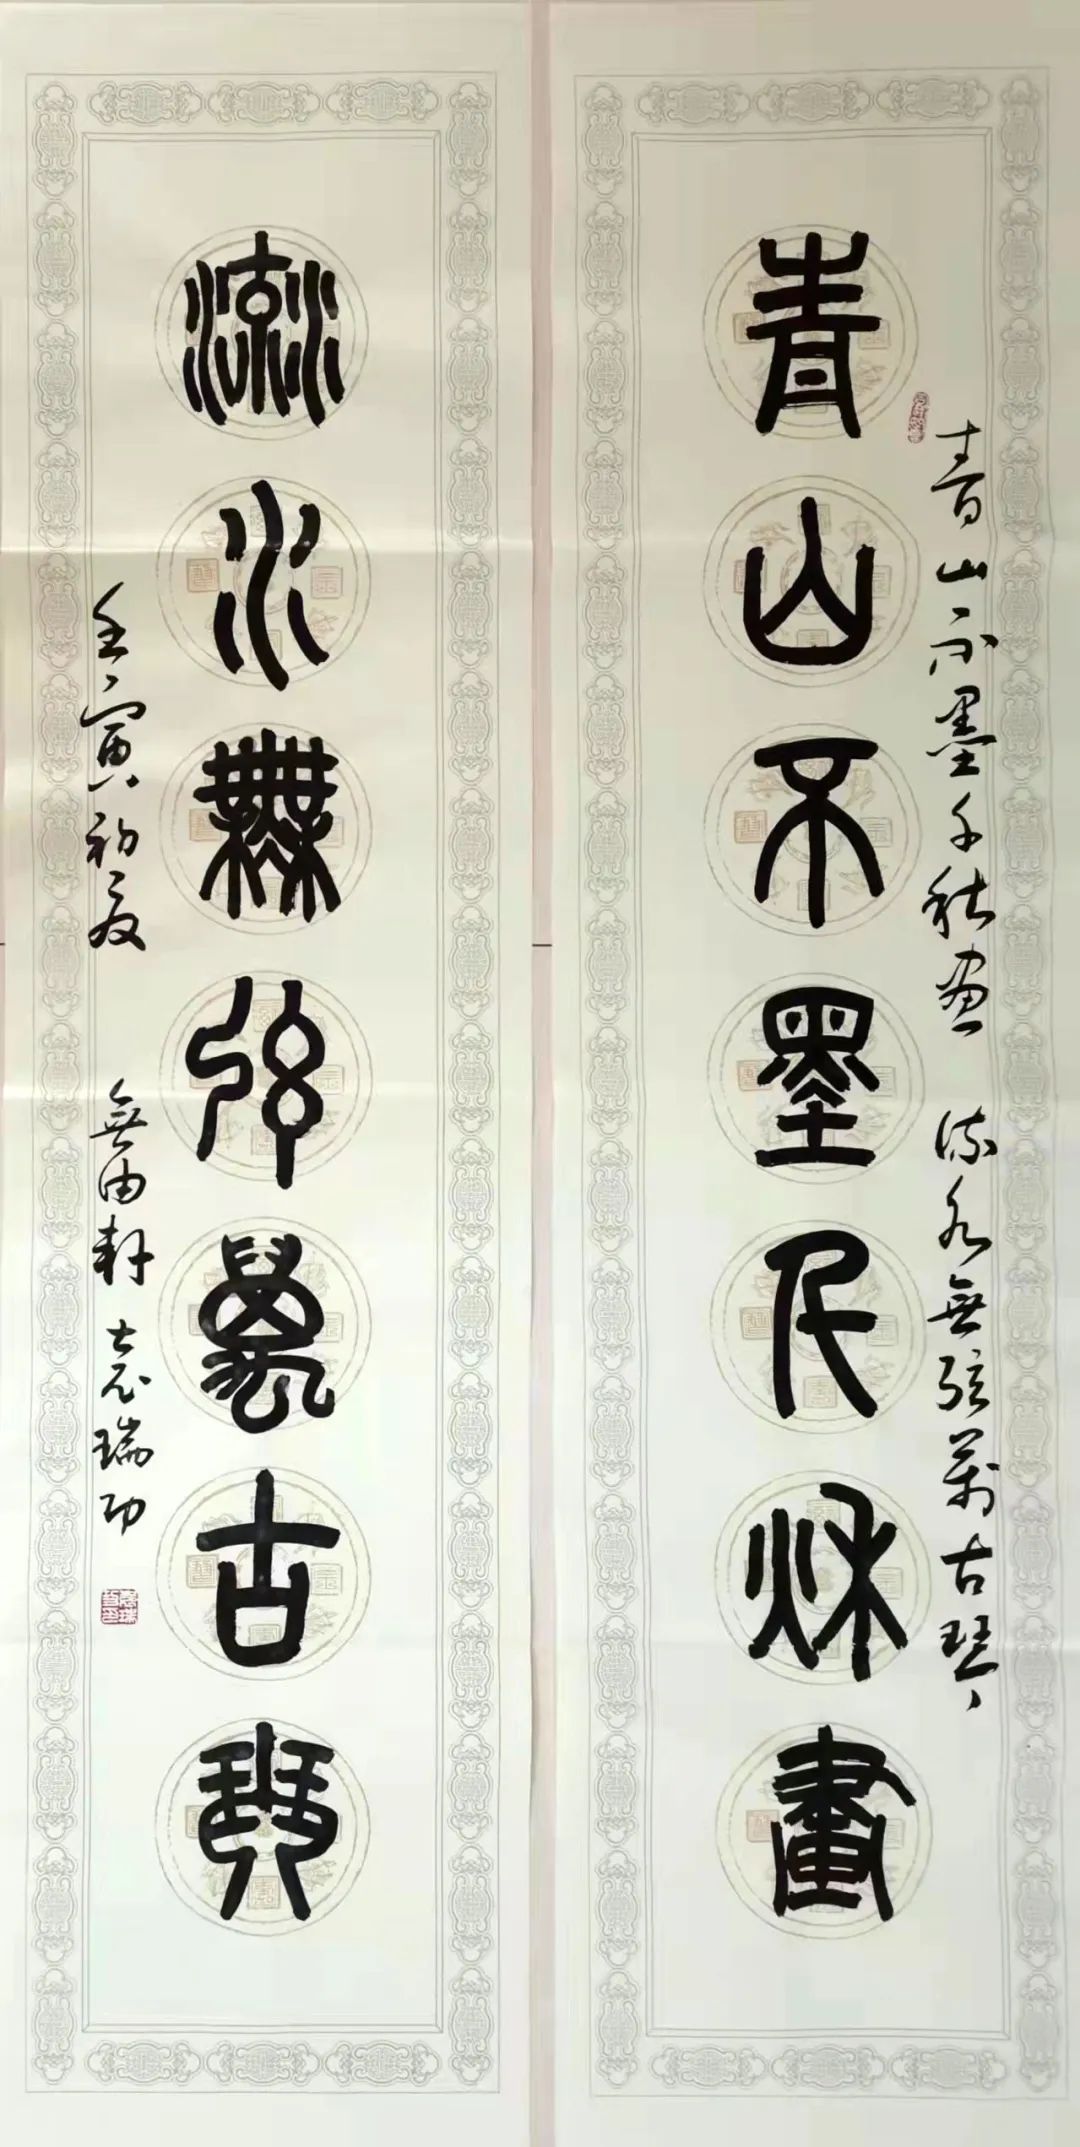 青山不墨千秋畫
青山不墨千秋画 流水無弦萬古琴
流水無弦萬古琴
壬寅初夏 無由軒 袁瑞功